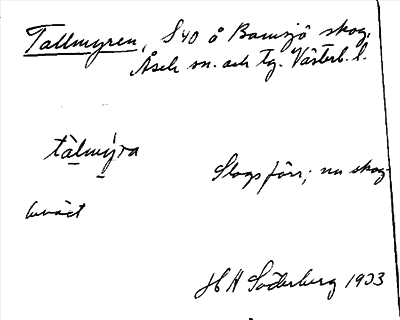 Tallmyren, S 40 å Barsjö skog,
Åsele sn. och tg. Västerb. l.
tàlmýra
Slogs förr; nu skog
beväxt
H H Söderberg 1933